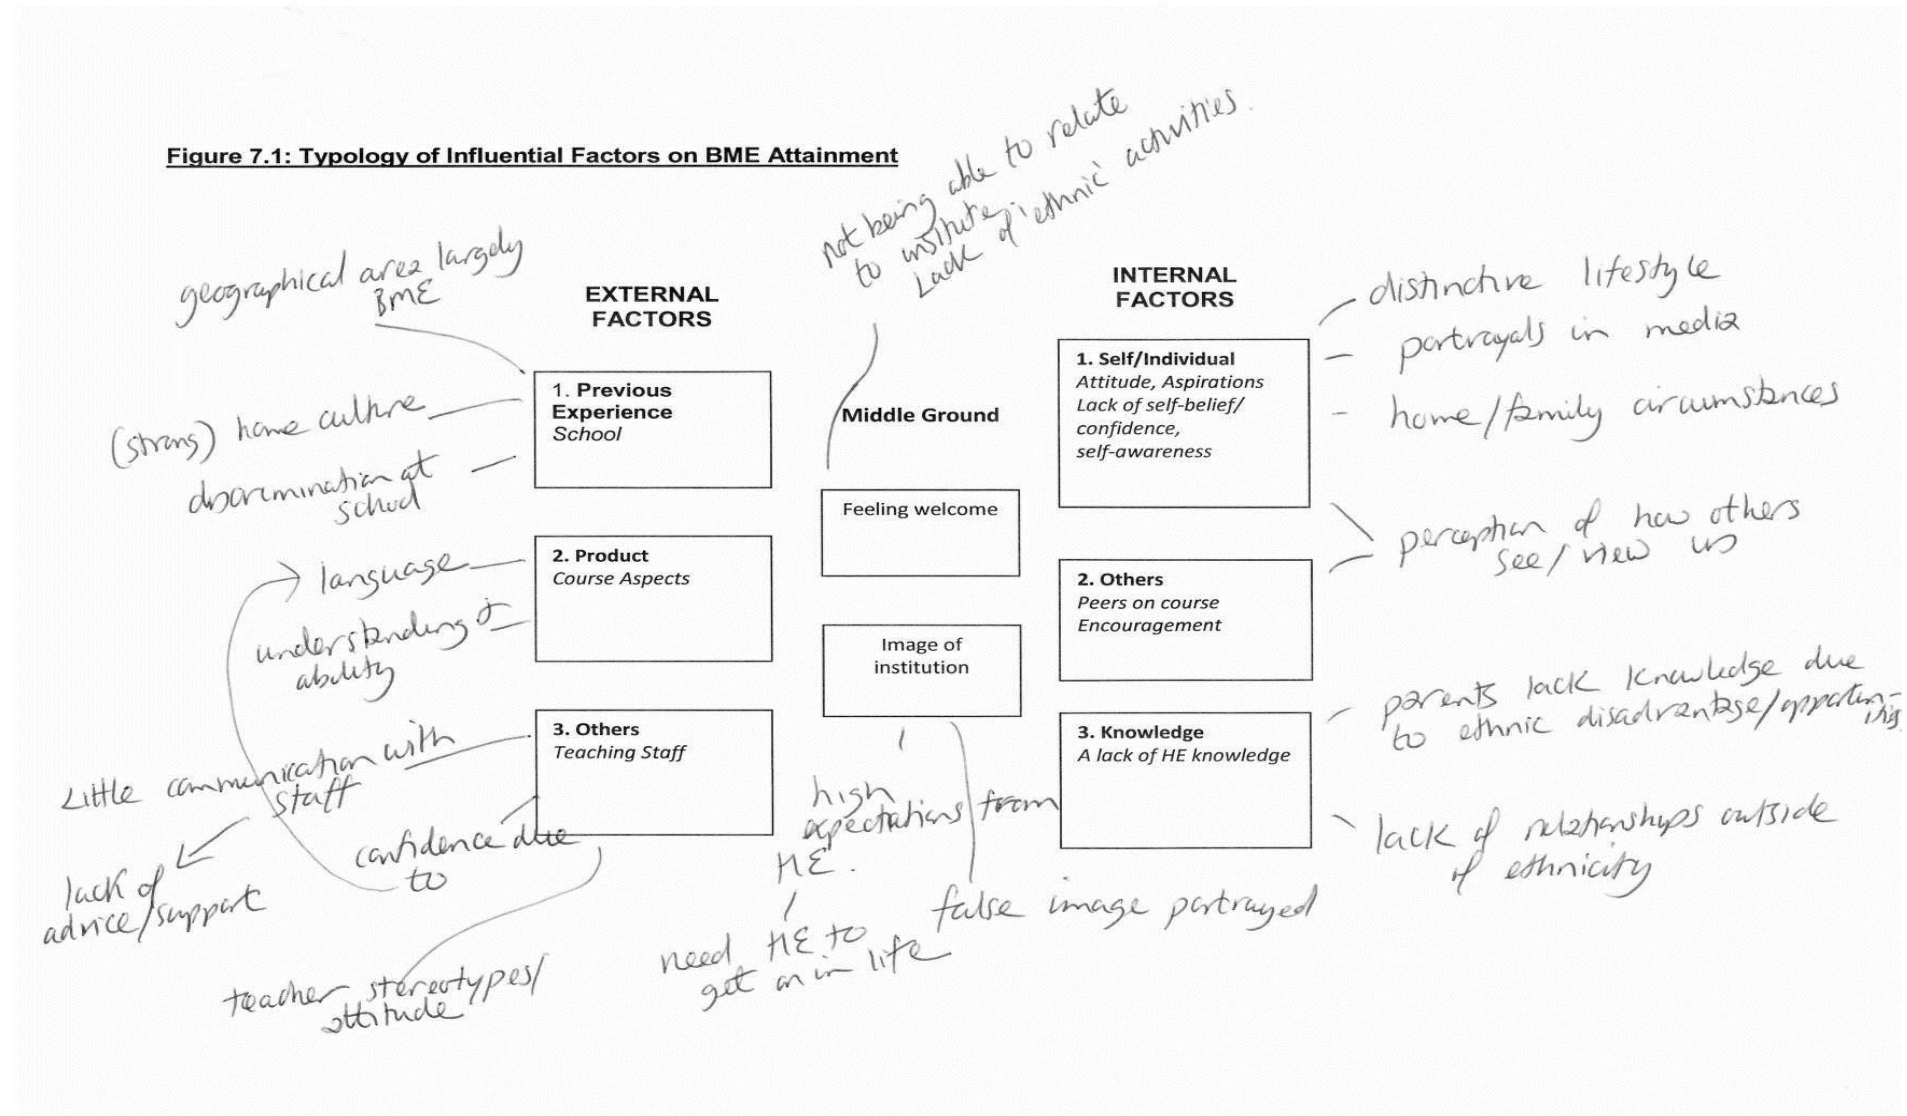 Figure 7.1: Typology of Influential Factors on BME Attainment
not being able to relate
to institute.
Lack of 'ethnic' activities.
geographical area largely
BME
(strong) home culture
discrimination at
school
language
understanding of
ability
Little communication with
staff
lack of
advice/support
confidence due
to
teacher stereotypes/
attitude
EXTERNAL
FACTORS
1. Previous
Experience
School
2. Product
Course Aspects
3. Others
Teaching Staff
Middle Ground
Feeling welcome
Image of
institution
high
expectations from
HE.
need HE to
get on in life
false image portrayed
INTERNAL
FACTORS
1. Self/Individual
Attitude, Aspirations
Lack of self-belief/
confidence,
self-awareness
2. Others
Peers on course
Encouragement
3. Knowledge
A lack of HE knowledge
distinctive lifestyle
portrayals in media
home/family circumstances
perception of how others
see/view us
parents lack knowledge due
to ethnic disadvantage/opportun-
ities
lack of relationships outside
of ethnicity